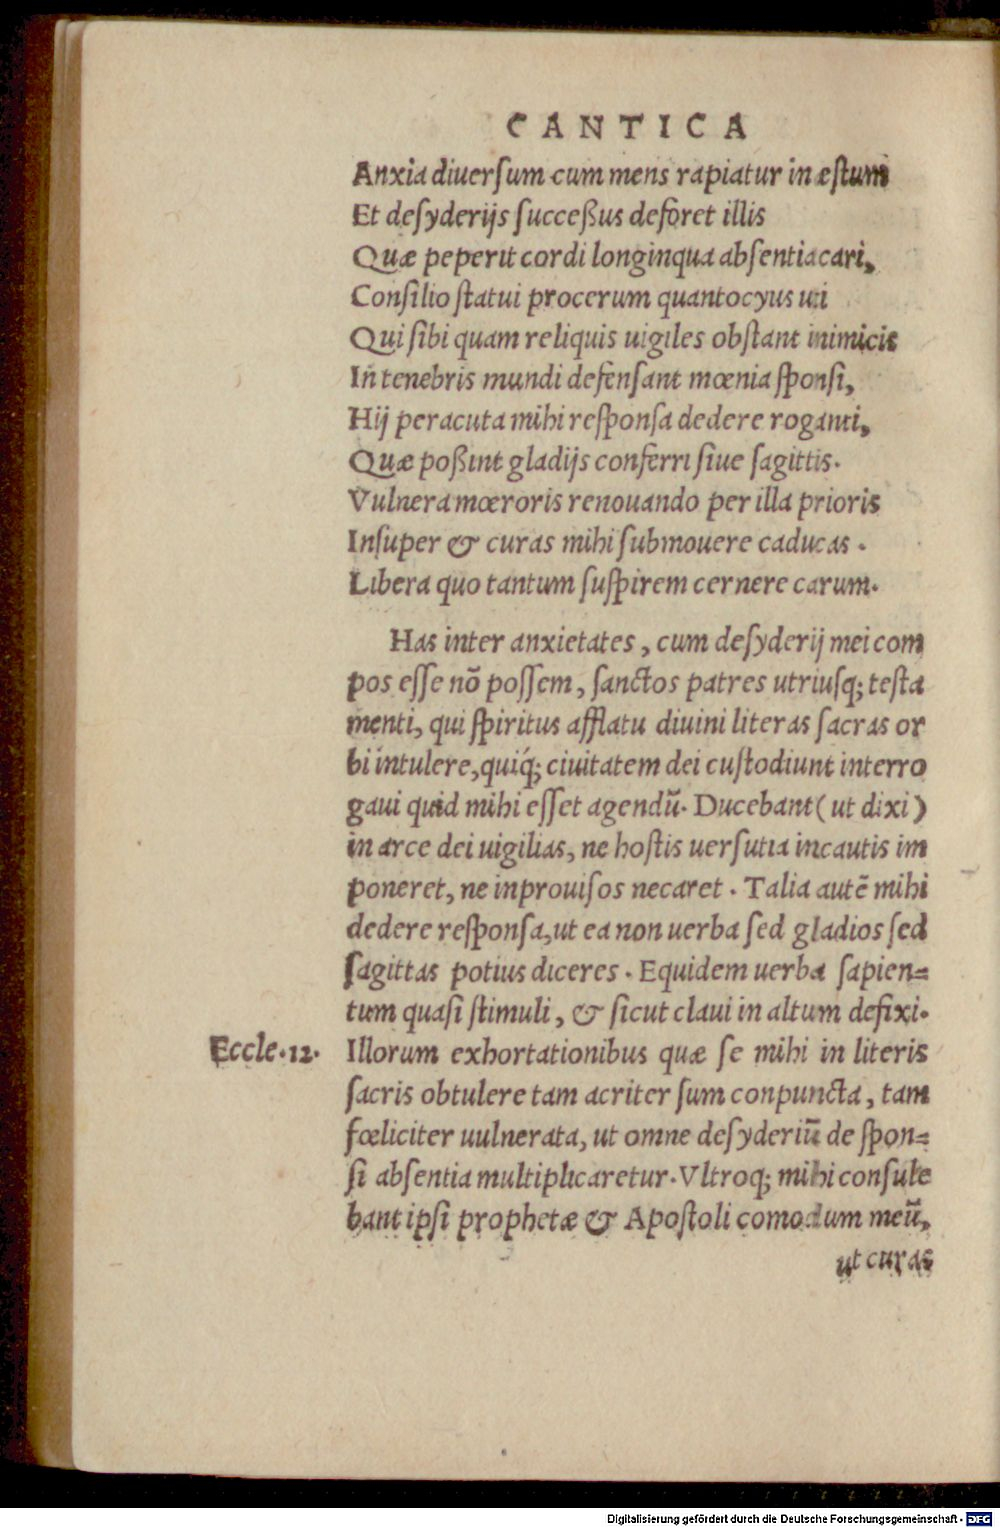 CANTICA
Anxia diuerſum cum mens rapiatur in æſtum
Et deſyderijs ſucceßus deforet illis
Quæ peperit cordi longinqua abſentia cari,
Conſilio ſtatui procerum quantocyus uti
Qui ſibi quam reliquis uigiles obſtant inimicis
In tenebris mundi defenſant mœnia ſponſi,
Hij peracuta mihi reſponſa dedere roganti,
Quæ poßint gladijs conferri ſiue ſagittis.
Vulnera mœroris renouando per illa prioris
Inſuper & curas mihi ſubmouere caducas .
Libera quo tantum ſuſpirem cernere carum.
Has inter anxietates, cum deſyderij mei com
pos eſſe nõ poſſem, ſanctos patres utriuſq; teſta
menti, qui ſpiritus afflatu diuini literas ſacras or
bi intulere, quiq́; ciuitatem dei cuſtodiunt interro
gaui quid mihi eſſet agendũ. Ducebant (ut dixi)
in arce dei uigilias, ne hoſtis uerſutia incautis im
poneret, ne inprouiſos necaret . Talia autẽ mihi
dedere reſponſa, ut ea non uerba ſed gladios ſed
ſagittas potius diceres . Equidem uerba ſapien=
tum quaſi ſtimuli, & ſicut claui in altum defixi.
Eccle.12. Illorum exhortationibus quæ ſe mihi in literis
ſacris obtulere tam acriter ſum conpuncta, tam
fœliciter uulnerata, ut omne deſyderiũ de ſpon=
ſi abſentia multiplicaretur. Vltroq; mihi conſule
bant ipſi prophetæ & Apoſtoli comodum meũ,
ut curas
Digitalisierung gefördert durch die Deutsche Forschungsgemeinschaft - DFG